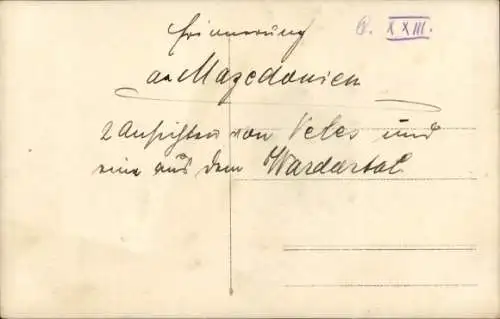 Erinnerung
an Mazedonien
2 Ansichten von Veles und
eine aus dem Wardartal
C. XXIII.